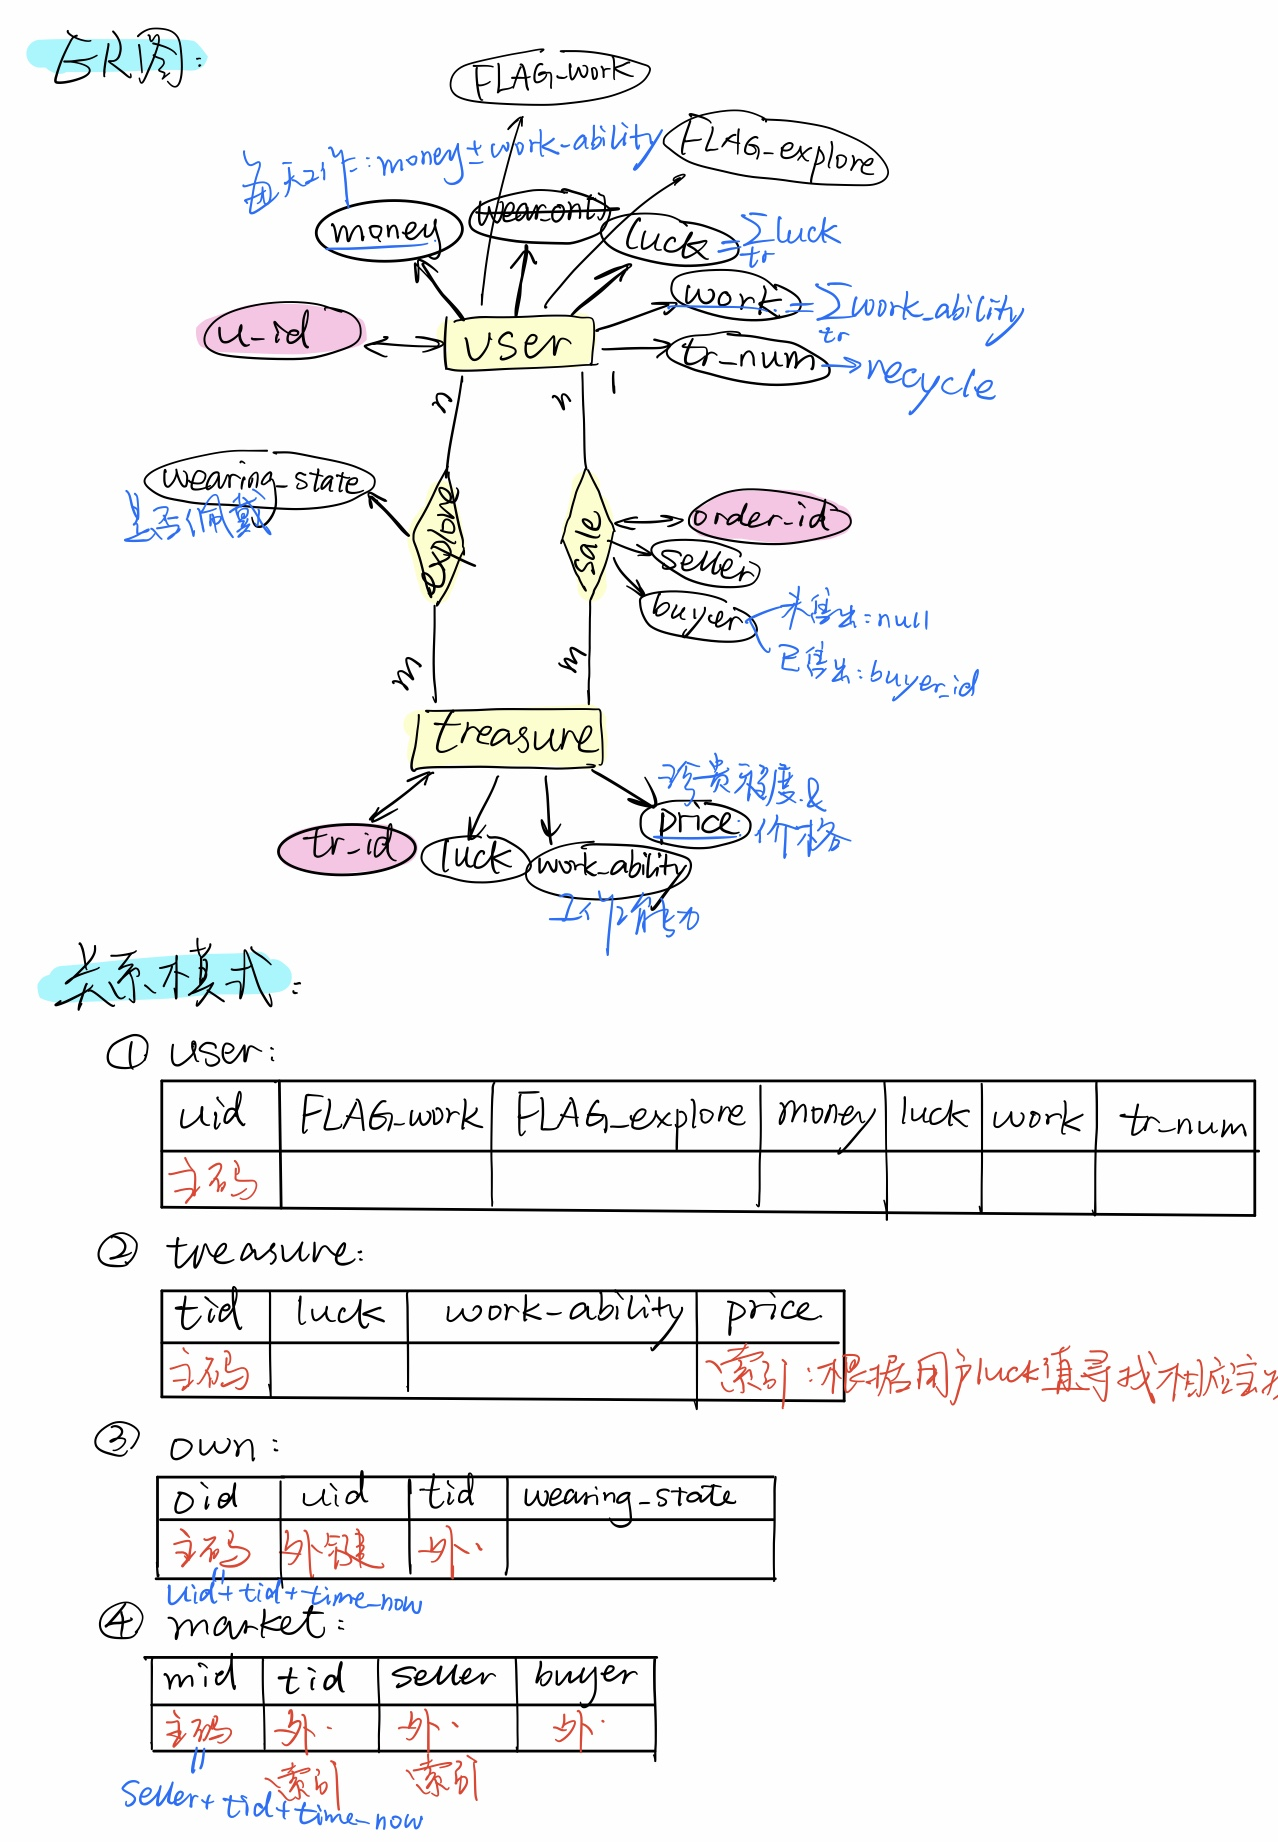 ER图:
FLAG_work
FLAG_explore
每天工作:money±work-ability
money
wear_on()
luck =∑luck
tr
work =∑work_ability
tr
u_id
user
tr_num → recycle
n
n
1
wearing_state
是否佩戴
explore
sale
order_id
seller
buyer
未售出:null
已售出:buyer_id
m
m
treasure
珍贵程度&
价格
price
tr_id
luck
work_ability
工作能力
关系模式:
① user:
uid FLAG_work FLAG_explore money luck work tr_num
主码
② treasure:
tid luck work-ability price
主码 索引:根据用户luck值寻找相应宝
③ own:
oid uid tid wearing_state
主码 外键 外.
uid+tid+time_now
④ market:
mid tid seller buyer
主码 外. 外. 外.
索引 索引
Seller+tid+time_now